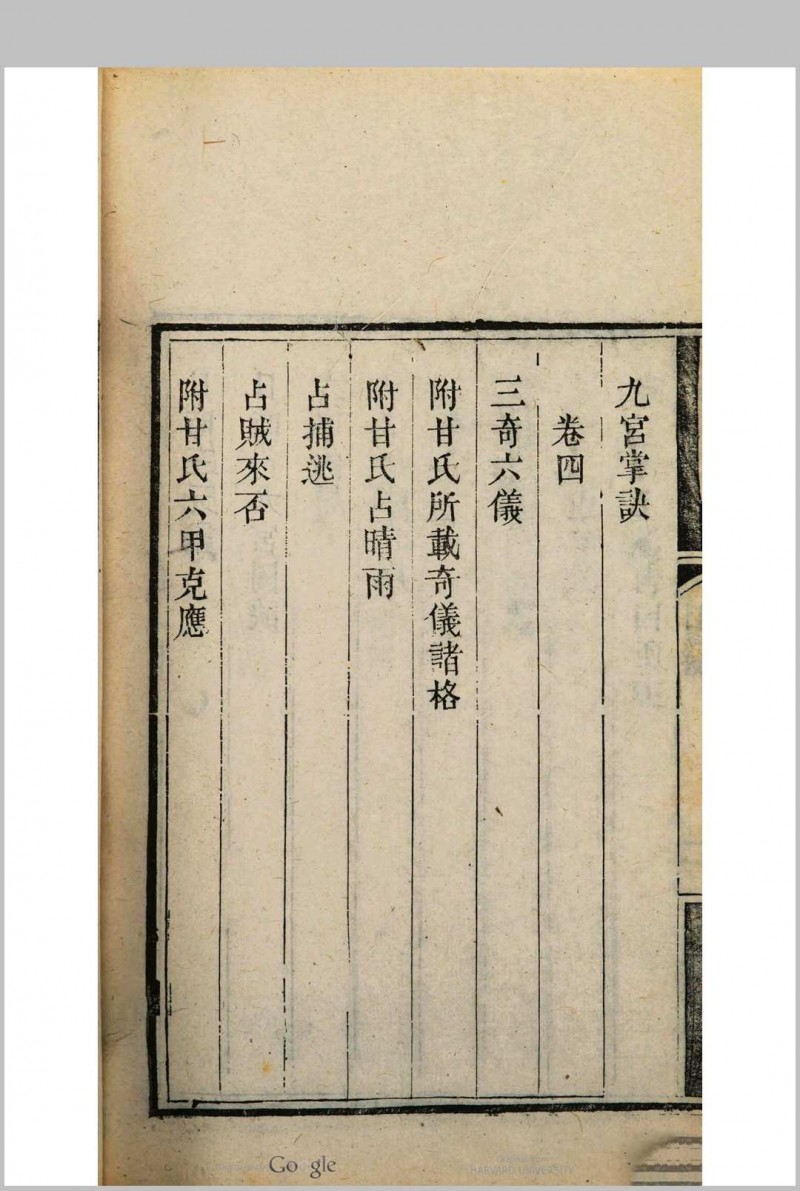 九宮掌訣
卷四
三奇六儀
附甘氏所載奇儀諸格
附甘氏占晴雨
占捕逃
占賊來否
附甘氏六甲克應
Google
HARVARD UNIVERSITY